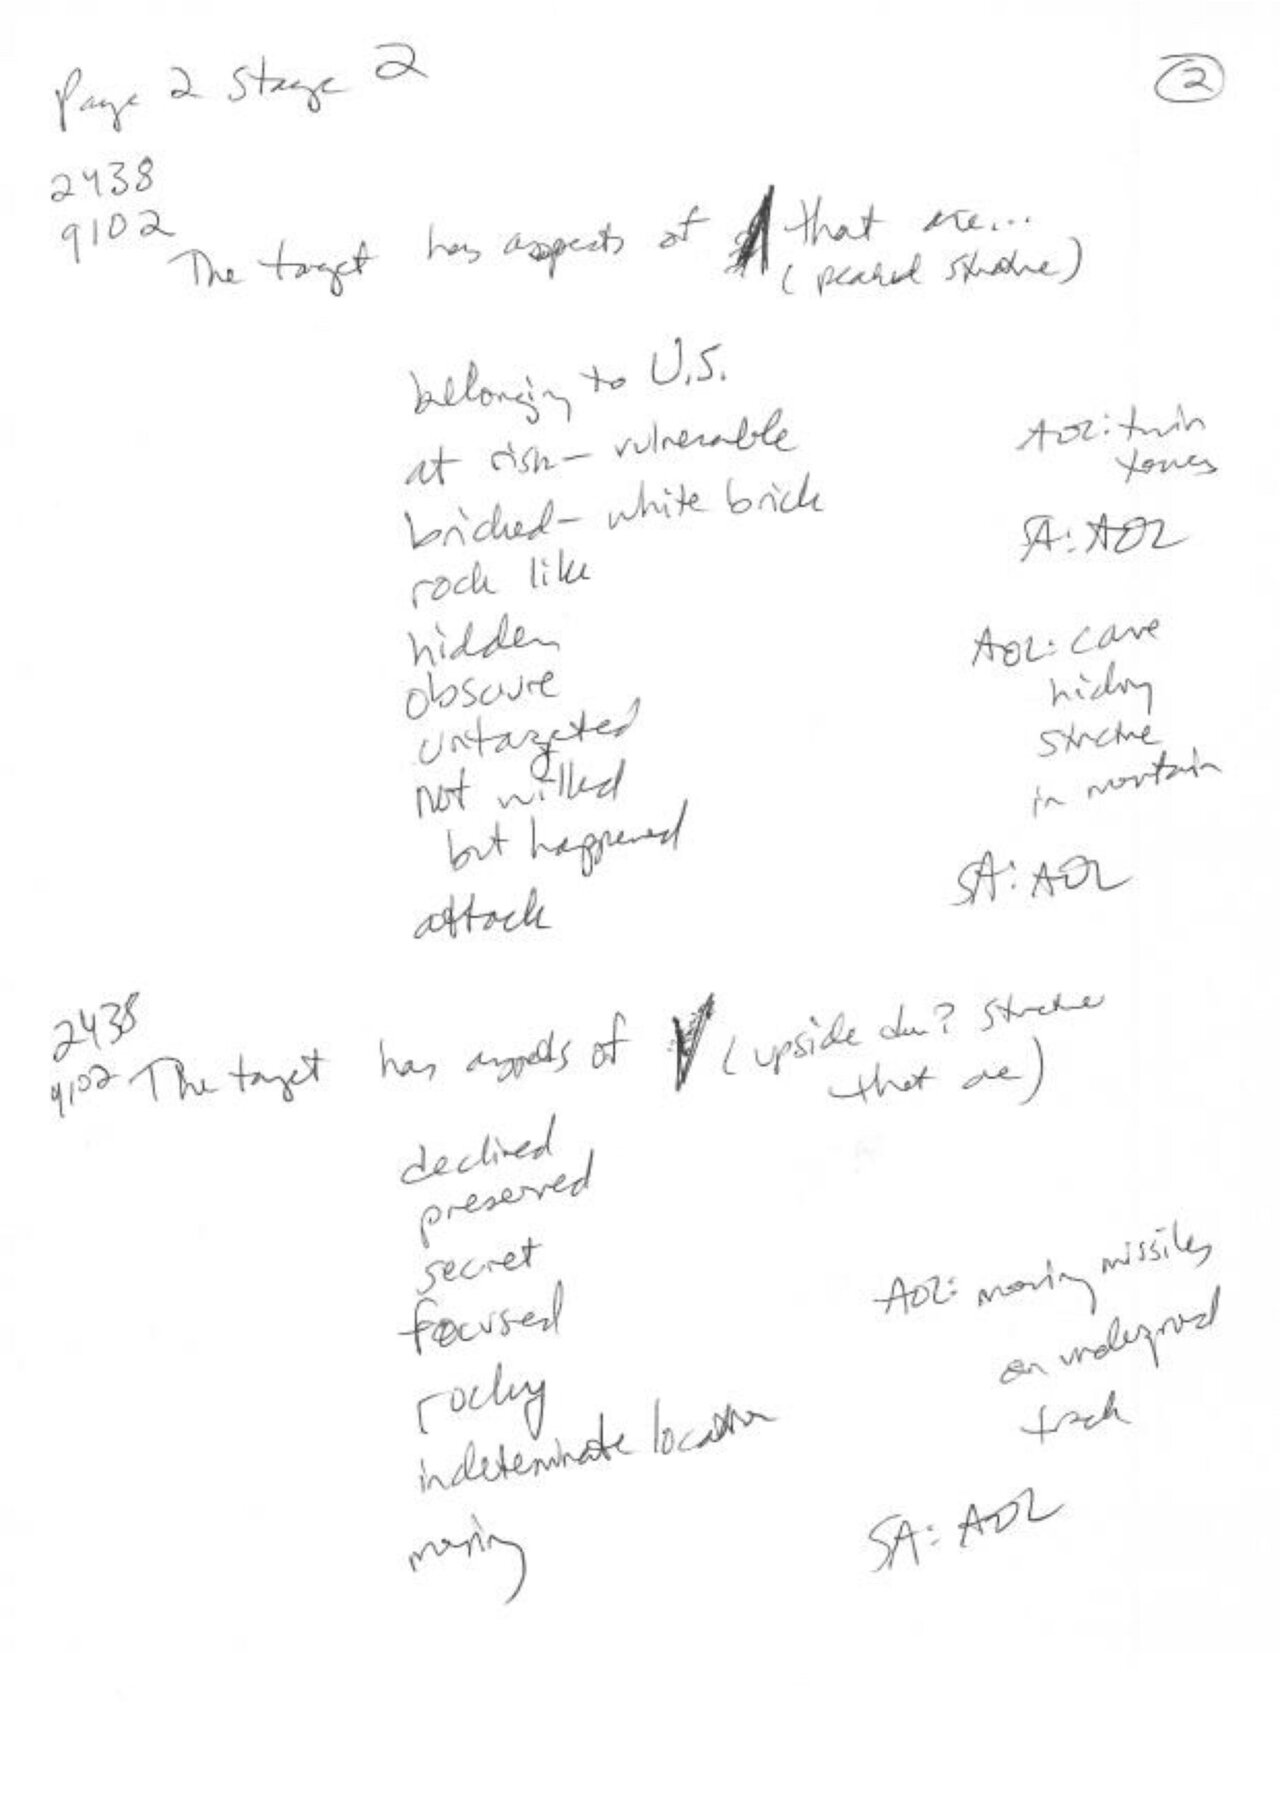 Page 2 Stage 2
2
2438
9102
The target has aspects of that are...
(peaked structure)
belonging to U.S.
at risk - vulnerable
AOL: twin
towers
bricked - white brick
SA: AOL
rock like
hidden
AOL: cave
hiding
structure
in mountain
obscure
untargeted
not willed
but happened
SA: AOL
attack
2438
9102 The target has aspects of (upside down? structure
that are)
declined
preserved
secret
focused
AOL: moving missiles
on underground
track
rocky
indeterminate location
moving
SA: AOL